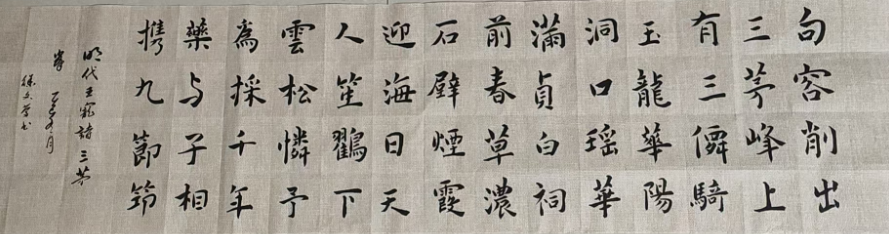 句容削出
三茅峰上
有三僊騎
玉龍華陽
洞口瑶華
滿貞白祠
前春草濃
石壁煙霞
迎海日天
人笙鶴下
雲松憐予
爲採千年
藥与子相
携九節筇
明代王寵詩三茅
峯
月
書